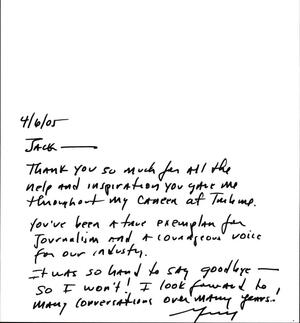 4/6/05
Jack —
Thank you so much for all the
help and inspiration you gave me
throughout my career at Tribune.
You've been a true exemplar for
journalism and a courageous voice
for our industry.
It was so hard to say goodbye —
So I won't! I look forward to
many conversations over many years!